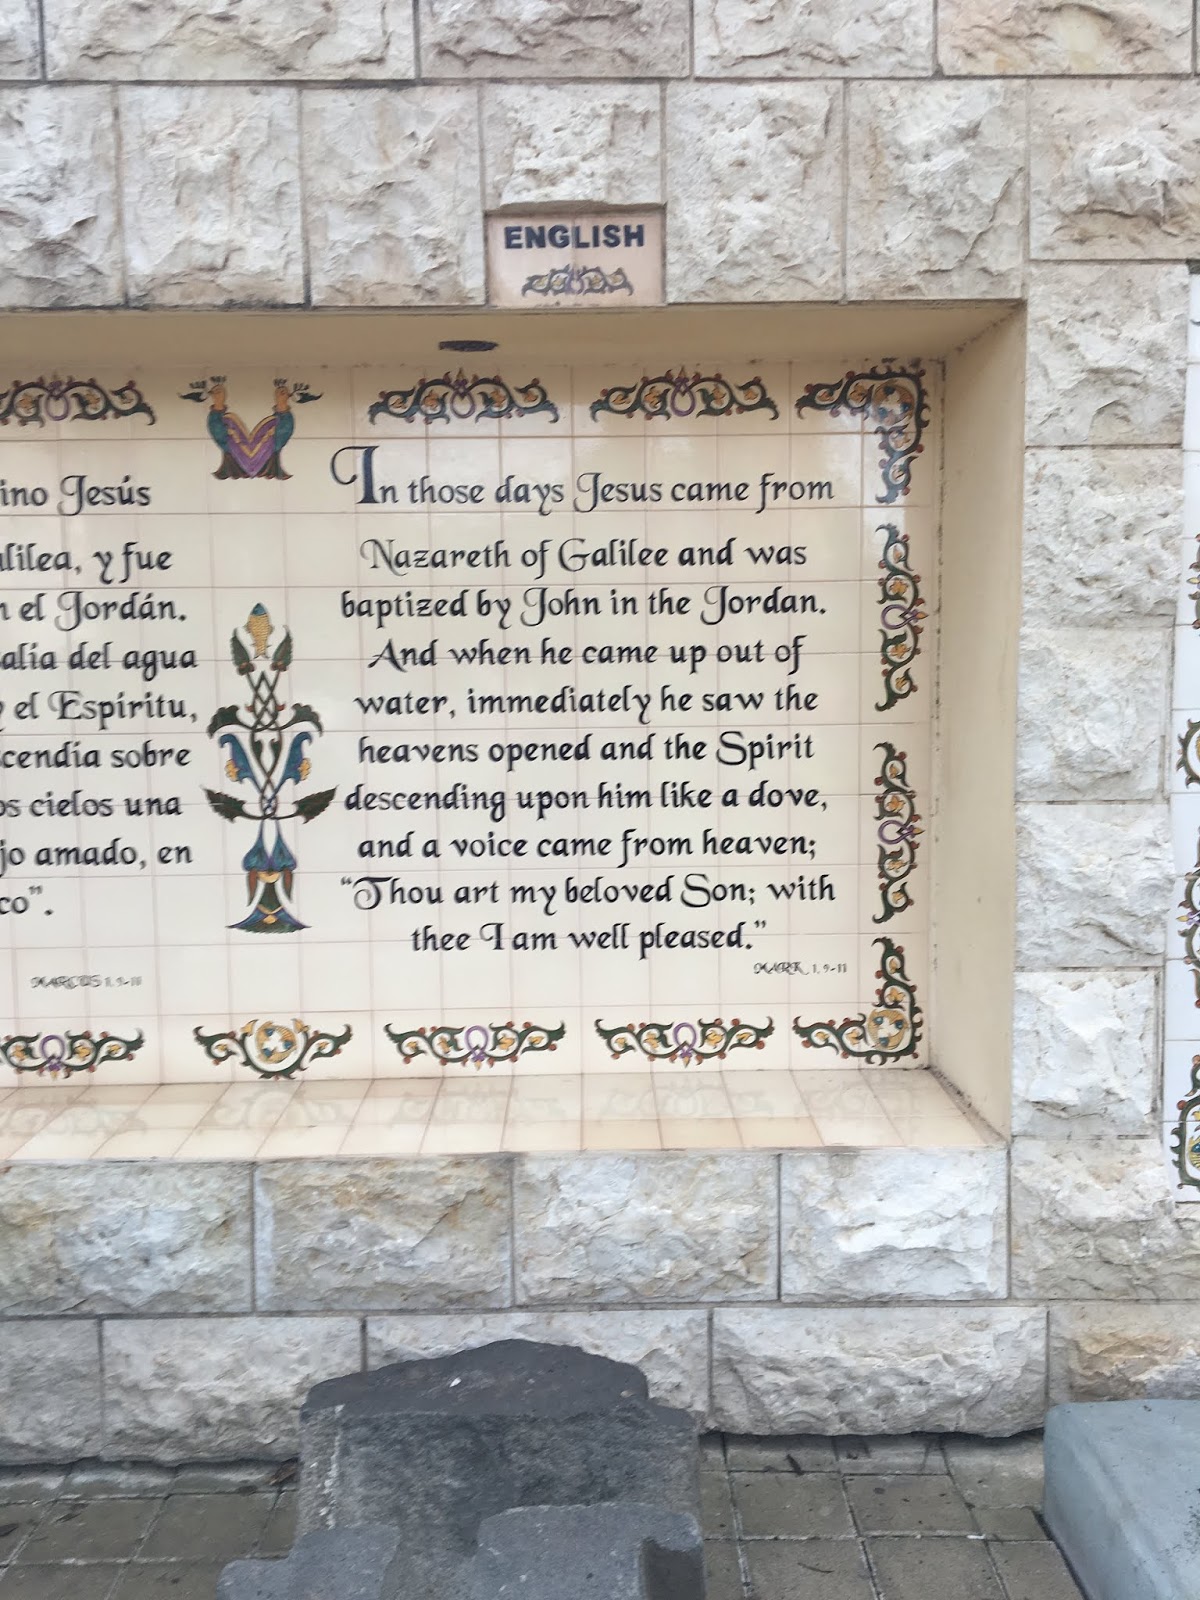 ENGLISH
ino Jesús
alilea, y fue
n el Jordán.
alía del agua
y el Espíritu,
scendía sobre
os cielos una
jo amado, en
co”.
MARCOS 1, 9-11
In those days Jesus came from
Nazareth of Galilee and was
baptized by John in the Jordan.
And when he came up out of
water, immediately he saw the
heavens opened and the Spirit
descending upon him like a dove,
and a voice came from heaven;
“Thou art my beloved Son; with
thee I am well pleased.”
MARK 1, 9-11